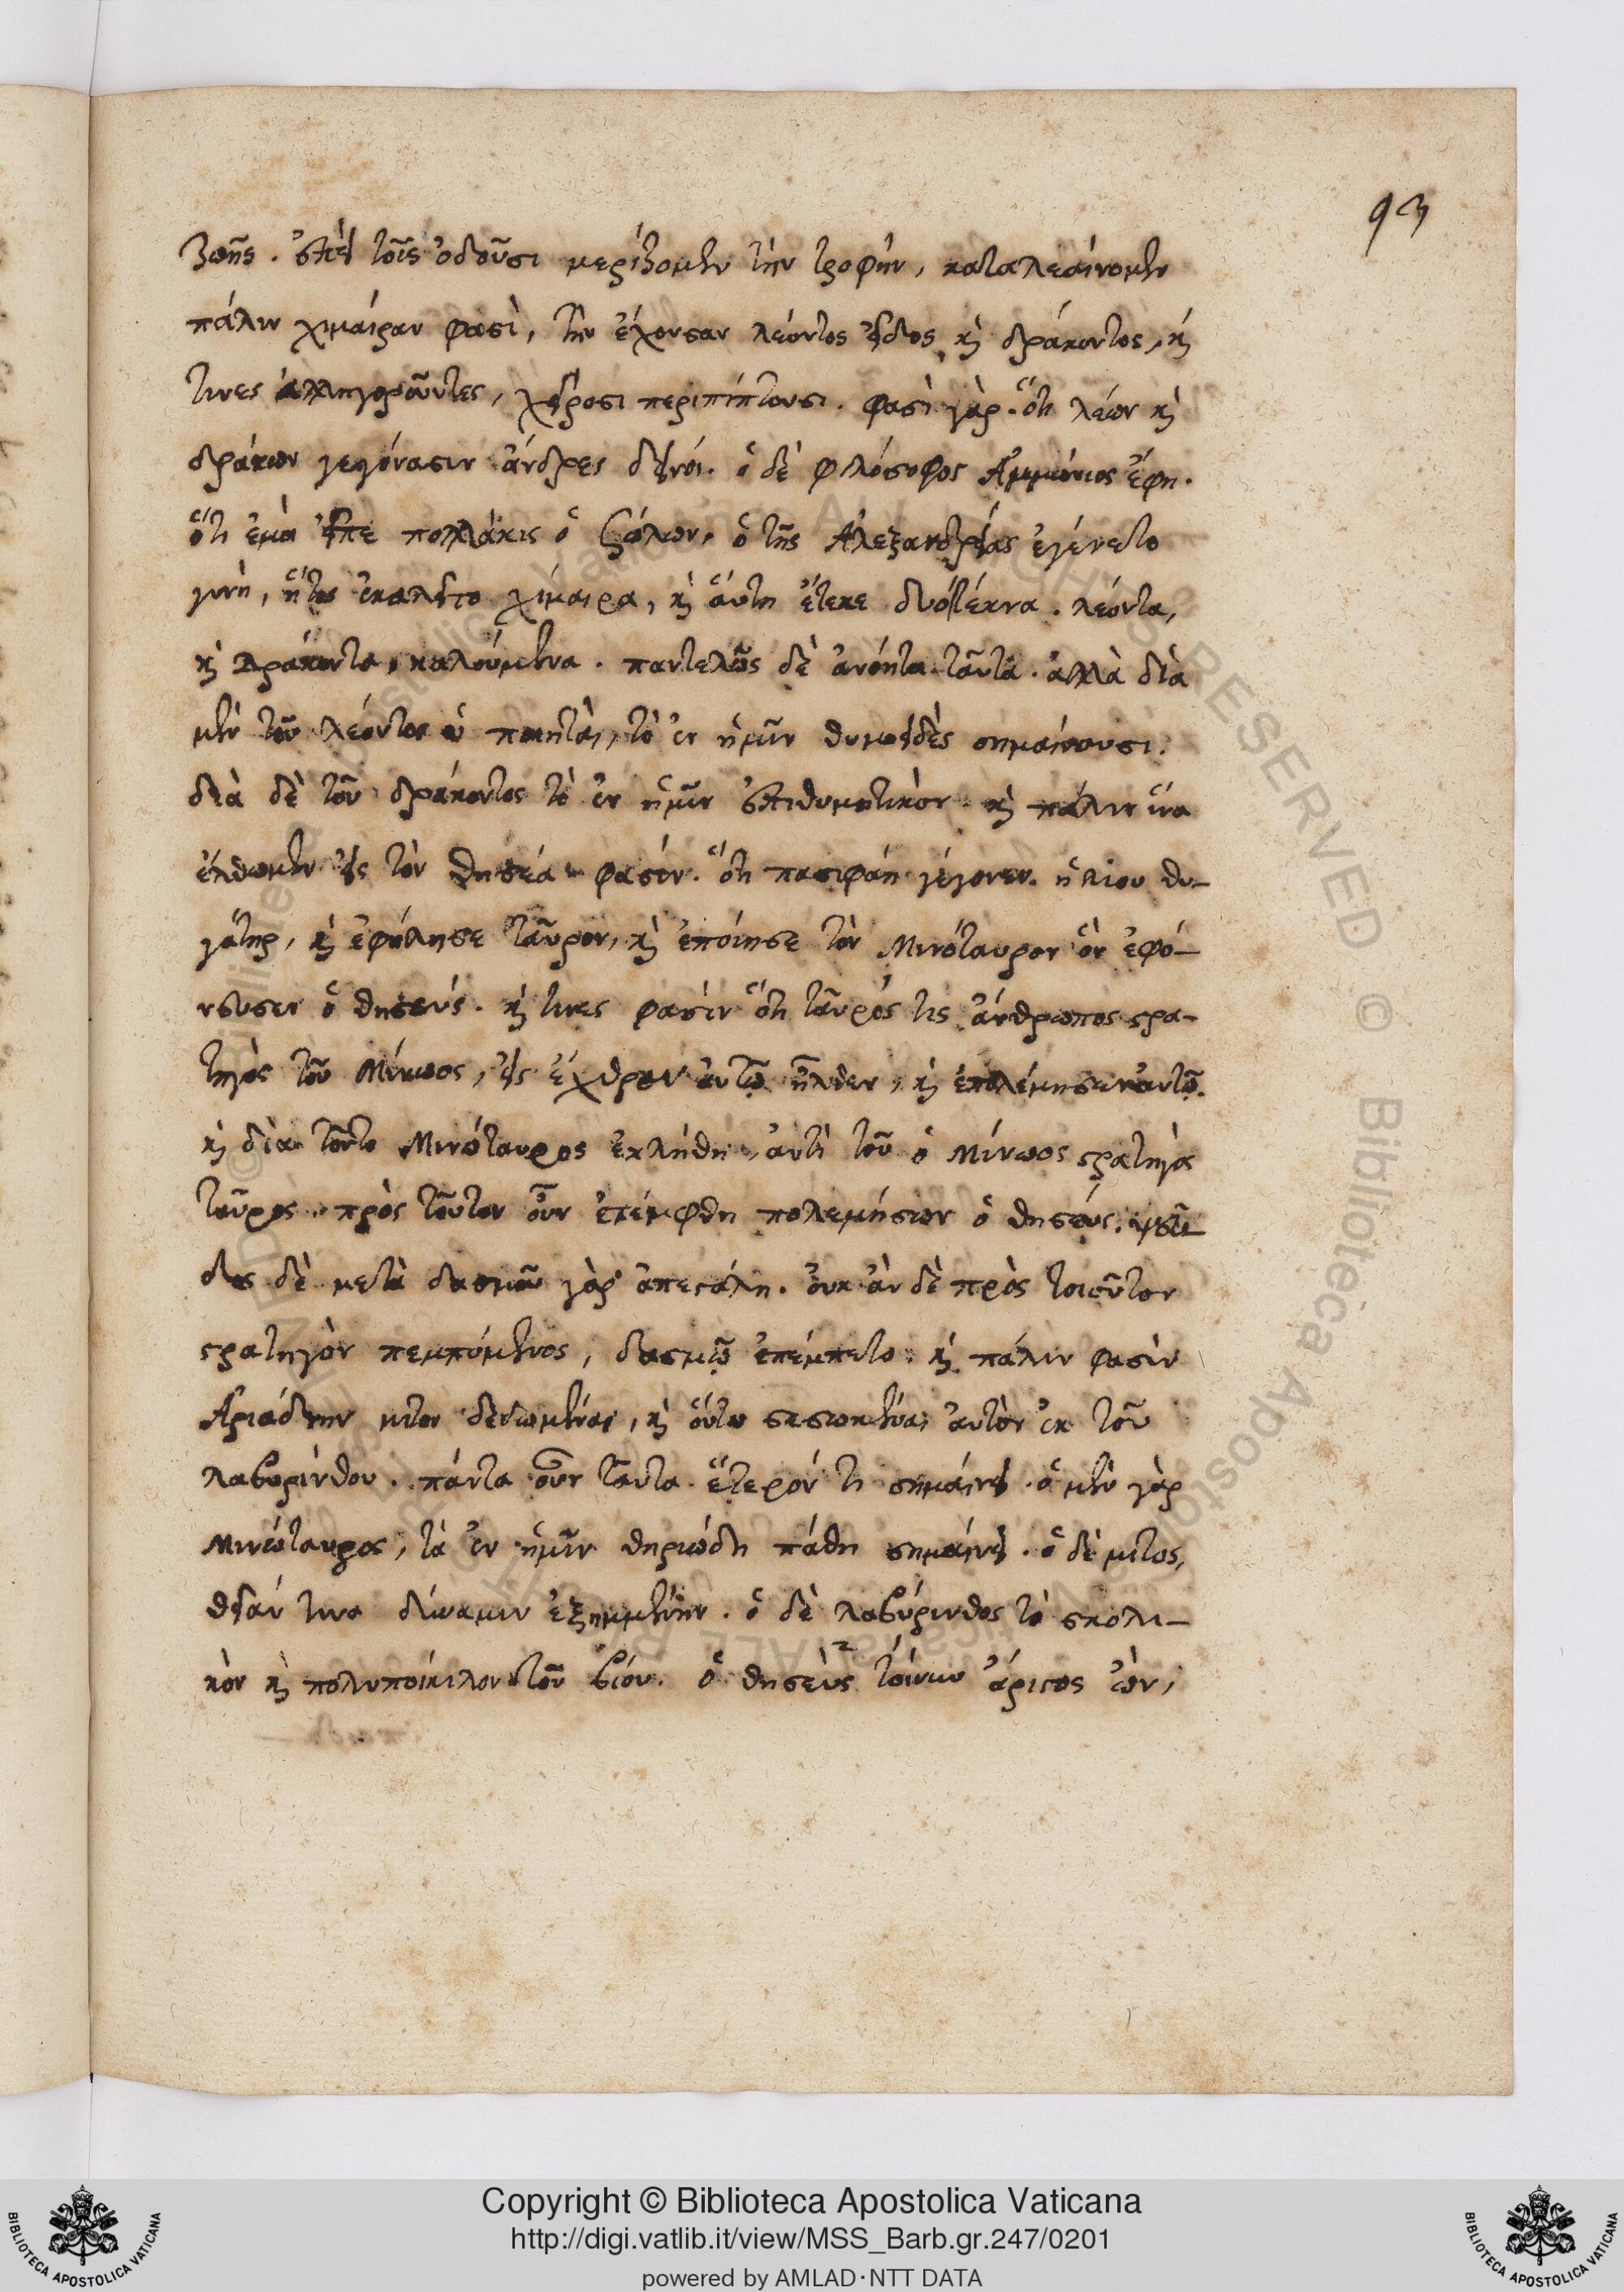 93
ζωῆς. ἐπεὶ τοῖς ὀδοῦσι μερίζομεν τὴν τροφήν, καταλεαίνομεν
πάλιν χιμαίραν φασὶ, τὴν ἔχουσαν λέοντος εἶδος καὶ δράκοντος, καί
τινες ἀλληγοροῦντες, χείροσι περιπίπτουσι. φασὶ γὰρ. ὅτι λέων καὶ
δράκων γεγόνασιν ἄνδρες δεινοί. ὁ δὲ φιλόσοφος Ἀμμώνιος ἔφη.
ὅτι ἐμὰ εἶπε πολλάκις ὁ ὁ τῆς Ἀλεξανδρείας ἐγένετο
γυνὴ, ἥτις ἐκαλεῖτο χίμαιρα, καὶ αὕτη ἔτεκε δυὸ τέκνα. λέοντα,
καὶ Δράκοντα, καλούμενα. παντελῶς δὲ ἀνόητα ταῦτα. ἀλλὰ διὰ
μὲν τοῦ λέοντος οἱ ποιηταὶ, τὸ ἐν ἡμῖν θυμοειδὲς σημαίνουσι.
διὰ δὲ τοῦ δράκοντος τὸ ἐν ἡμῖν ἐπιθυμητικὸν. καὶ πάλιν ἵνα
ἔλθωμεν εἰς τὸν θησέα φασίν. ὅτι πασιφάη γέγονεν. ἡλίου θυ-
γάτηρ, καὶ ἐφίλησε ταῦρον, καὶ ἐποίησε τὸν Μινόταυρον ὃν ἐφό-
νευσεν ὁ θησεύς. καί τινες φασὶν ὅτι ταῦρός τις ἄνθρωπος στρα-
τηγὸς τοῦ Μίνωος, εἰς ἔχθραν αὐτῷ ἦλθεν, καὶ ἐπολέμησεν αὐτῷ.
καὶ διὰ τοῦτο Μινόταυρος ἐκλήθη, ἀντὶ τοῦ ὁ Μίνωος στρατηγὸς
ταῦρος. πρὸς τοῦτον οὖν ἐπέμφθη πολεμήσων ὁ θησεύς. ψεῦ-
δος δὲ μετὰ δασμοῦ γὰρ ἀπεστάλη. οὐκ ἂν δὲ πρὸς τοιοῦτον
στρατηγὸν πεμπόμενος, δασμῷ ἐπέμπετο. καὶ πάλιν φασὶν
Ἀριάδνην μίτον δεδωκέναι, καὶ οὕτω σεσωκέναι αὐτὸν ἐκ τοῦ
λαβυρίνθου. πάντα οὖν ταῦτα ἕτερόν τι σημαίνει. ὁ μὲν γὰρ
Μινώταυρος, τὰ ἐν ἡμῖν θηριώδη πάθη σημαίνει. ὁ δὲ μίτος,
θείαν τινα δύναμιν ἐξημμένην. ὁ δὲ λαβύρινθος τὸ σκολι-
κὸν καὶ πολυποίκιλον τοῦ βίου. ὁ θησεὺς τοίνυν ἄριστος ὢν,
Copyright © Biblioteca Apostolica Vaticana
http://digi.vatlib.it/view/MSS_Barb.gr.247/0201
powered by AMLAD·NTT DATA